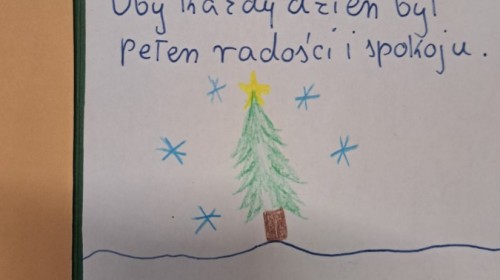 Oby każdy dzień był
pełen radości i spokoju.